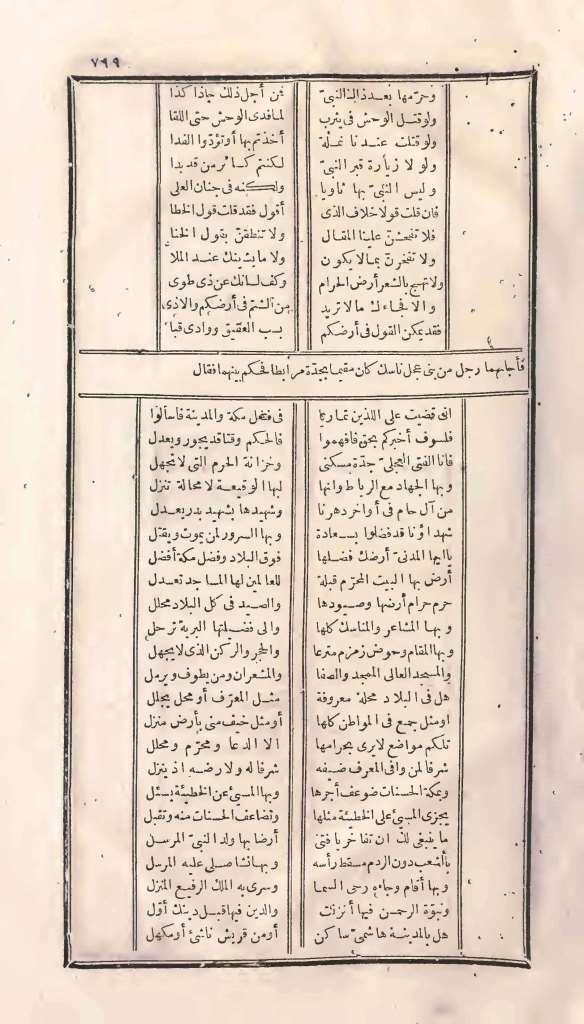 ٧٩٩
وحرّمها بعد ذاك النبيّ فمن أجل ذلك جاذا كذا
ولو قتل الوحش في يثرب لما فدى الوحش حتى اللقا
ولو قتلت عندنا نملة أخذتم بها أو تؤدّوا الفدا
ولولا زيارة قبر النبيّ لكنتم كسائر من قد بدا
وليس النبيّ بها ثاويا ولكنه في جنان العلى
فان قلت قولا خلاف الذى أقول فقد قلت قول الخطا
فلا تفحشنّ علينا المقال ولا تنطقنّ بقول الخنا
ولا تفخرنّ بما لا يكون ولا ما يشينك عند الملا
ولا تهج بالشعر أرض الحرام وكف لسانك عن ذى طوى
والا فجاءك ما لا تريد من الشتم فى أرضكم والاذى
فقد يمكن القول فى أرضكم بسب العقيق ووادى قبا
فأجابهما رجل من بنى عجل ناسك كان مقيما بجدّة مرابطا فحكم بينهما فقال
انى قضيت على اللذين تماريا فى فضل مكة والمدينة فاسألوا
فلسوف أخبركم بحق فافهموا فالحكم وقتا قد يجور ويعدل
فانا الفتى العجلىّ جدّة مسكنى وخزانة الحرم التى لا تجهل
وبها الجهاد مع الرباط وانها لبها الوقيعة لا محالة تنزل
من آل حام فى أواخر دهرنا وشهيدها بشهيد بدر يعدل
شهداؤنا قد فضلوا بسعادة وبها السرور لمن يموت ويقتل
يا ايها المدنىّ أرضك فضلها فوق البلاد وفضل مكة أفضل
أرض بها البيت المحرّم قبلة للعالمين لها المساجد تعدل
حرم حرام أرضها وصيودها والصيد فى كل البلاد محلل
وبها المشاعر والمناسك كلها والى فضيلتها البرية ترحل
وبها المقام وحوض زمزم مترعا والحجر والركن الذى لا يجهل
والمسجد العالى الممجد والصفا والمشعران ومن يطوف ويرمل
هل فى البلاد محلة معروفة مثل المعرّف أو محل يحلل
او مثل جمع فى المواطن كلها أو مثل خيف منى بأرض منزل
تلكم مواضع لا يرى بحرامها الا الدعا ومحرّم ومحلل
شرفا لمن وافى المعرف ضيفه شرفا له ولارضه اذ ينزل
وبمكة الحسنات ضوعف أجرها وبها المسىء عن الخطيئة يسئل
يجزى المسىء على الخطيئة مثلها وتضاعف الحسنات منه وتقبل
ما ينبغى لك ان تفاخر يا فتى أرضا بها ولد النبىّ المرسل
بالشعب دون الردم مسقط رأسه وبها نشا صلى عليه المرسل
وبها أقام وجاءه وحى السما وسرى به الملك الرفيع المنزل
ونبوّة الرحمن فيها أنزلت والدين فيها قبل دينك أوّل
هل بالمدينة هاشمىّ ساكن أو من قريش ناشئ أو مكهل